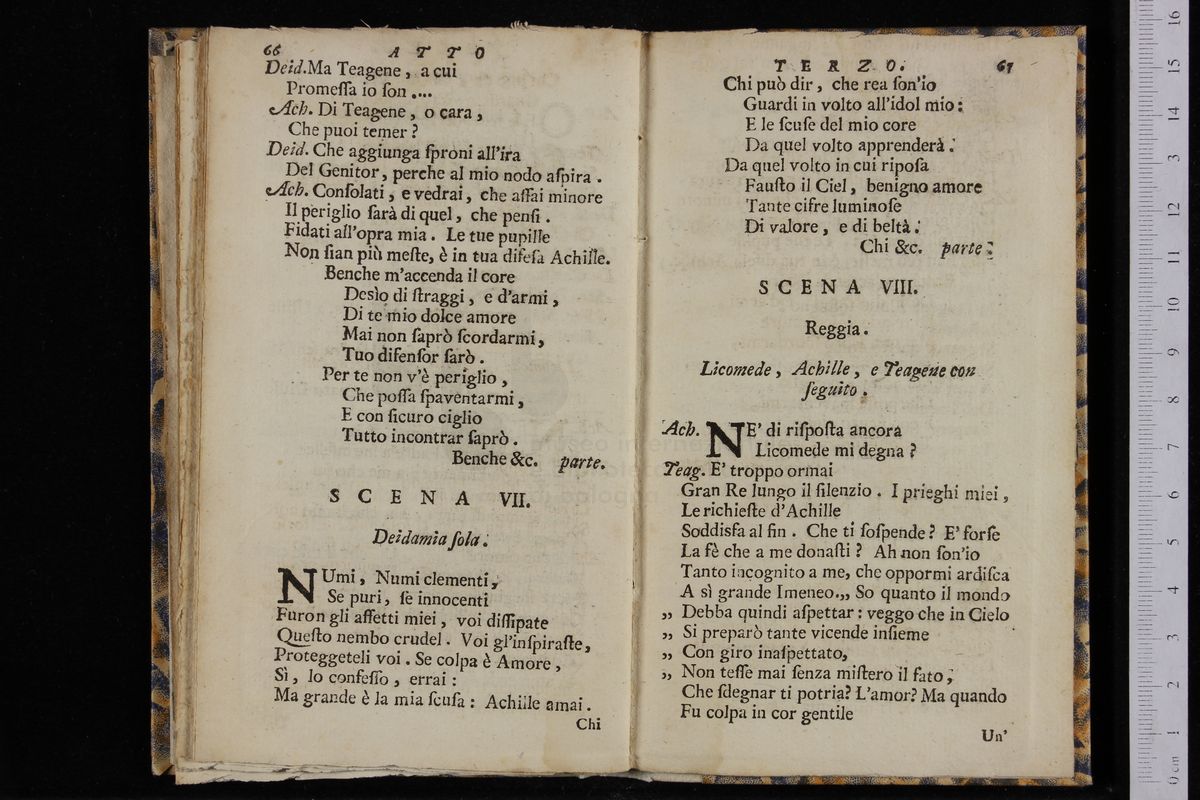 66 ATTO
Deid. Ma Teagene, a cui
Promeſſa io ſon ....
Ach. Di Teagene, o cara,
Che puoi temer?
Deid. Che aggiunga ſproni all'ira
Del Genitor, perche al mio nodo aſpira.
Ach. Conſolati, e vedrai, che aſſai minore
Il periglio ſarà di quel, che penſi.
Fidati all'opra mia. Le tue pupille
Non ſian più meſte, è in tua difeſa Achille.
Benche m'accenda il core
Desìo di ſtraggi, e d'armi,
Di te mio dolce amore
Mai non ſaprò ſcordarmi,
Tuo difenſor ſarò.
Per te non v'è periglio,
Che poſſa ſpaventarmi,
E con ſicuro ciglio
Tutto incontrar ſaprò.
Benche &c. parte.
SCENA VII.
Deidamia ſola.
NUmi, Numi clementi,
Se puri, ſe innocenti
Furon gli affetti miei, voi diſſipate
Queſto nembo crudel. Voi gl'inſpiraſte,
Proteggeteli voi. Se colpa è Amore,
Sì, lo confeſſo, errai:
Ma grande è la mia ſcuſa: Achille amai.
Chi
TERZO. 67
Chi può dir, che rea ſon'io
Guardi in volto all'idol mio:
E le ſcuſe del mio core
Da quel volto apprenderà.
Da quel volto in cui ripoſa
Fauſto il Ciel, benigno amore
Tante cifre luminoſe
Di valore, e di beltà.
Chi &c. parte.
SCENA VIII.
Reggia.
Licomede, Achille, e Teagene con
ſeguito.
Ach. NE' di riſpoſta ancora
Licomede mi degna?
Teag. E' troppo ormai
Gran Re lungo il ſilenzio. I prieghi miei,
Le richieſte d'Achille
Soddisfa al fin. Che ti ſoſpende? E' forſe
La fè che a me donaſti? Ah non ſon'io
Tanto incognito a me, che oppormi ardiſca
A sì grande Imeneo.,, So quanto il mondo
,, Debba quindi aſpettar: veggo che in Cielo
,, Si preparò tante vicende inſieme
,, Con giro inaſpettato,
,, Non teſſe mai ſenza miſtero il fato;
Che ſdegnar ti potria? L'amor? Ma quando
Fu colpa in cor gentile
Un'
0 cm 1 2 3 4 5 6 7 8 9 10 11 12 13 14 15 16